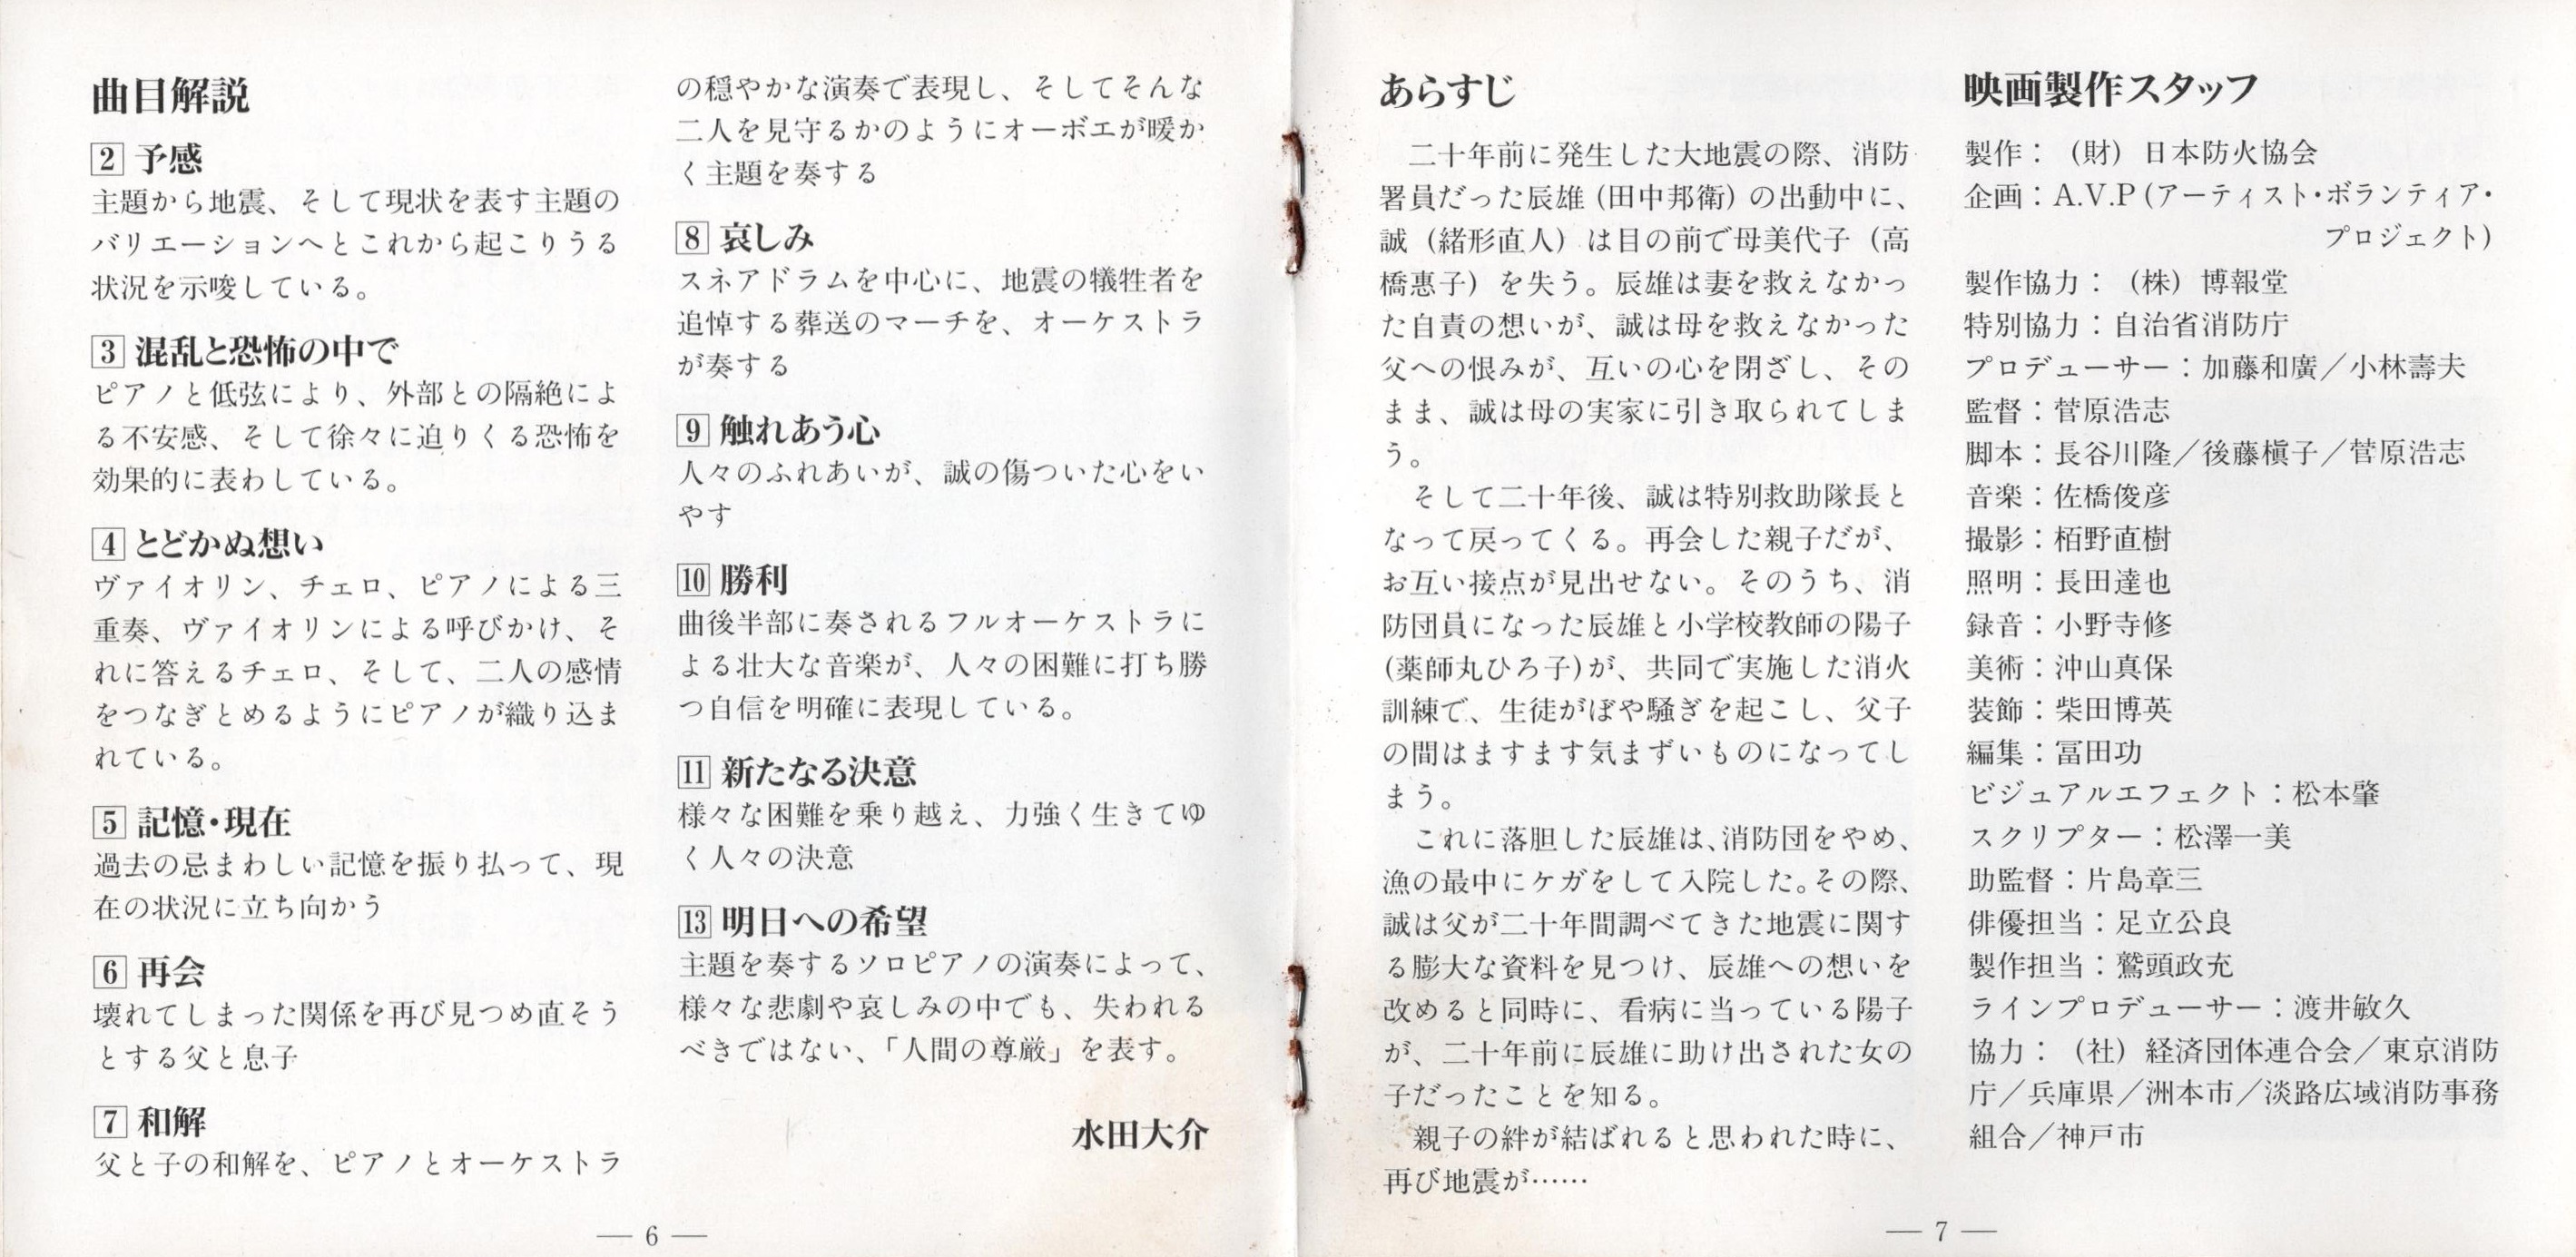 曲目解説
2 予感
主題から地震、そして現状を表す主題の
バリエーションへとこれから起こりうる
状況を示唆している。
3 混乱と恐怖の中で
ピアノと低弦により、外部との隔絶によ
る不安感、そして徐々に迫りくる恐怖を
効果的に表わしている。
4 とどかぬ想い
ヴァイオリン、チェロ、ピアノによる三
重奏、ヴァイオリンによる呼びかけ、そ
れに答えるチェロ、そして、二人の感情
をつなぎとめるようにピアノが織り込ま
れている。
5 記憶・現在
過去の忌まわしい記憶を振り払って、現
在の状況に立ち向かう
6 再会
壊れてしまった関係を再び見つめ直そう
とする父と息子
7 和解
父と子の和解を、ピアノとオーケストラ
の穏やかな演奏で表現し、そしてそんな
二人を見守るかのようにオーボエが暖か
く主題を奏する
8 哀しみ
スネアドラムを中心に、地震の犠牲者を
追悼する葬送のマーチを、オーケストラ
が奏する
9 触れあう心
人々のふれあいが、誠の傷ついた心をい
やす
10 勝利
曲後半部に奏されるフルオーケストラに
よる壮大な音楽が、人々の困難に打ち勝
つ自信を明確に表現している。
11 新たなる決意
様々な困難を乗り越え、力強く生きてゆ
く人々の決意
13 明日への希望
主題を奏するソロピアノの演奏によって、
様々な悲劇や哀しみの中でも、失われる
べきではない、「人間の尊厳」を表す。
水田大介
— 6 —
あらすじ
二十年前に発生した大地震の際、消防
署員だった辰雄(田中邦衛)の出動中に、
誠(緒形直人)は目の前で母美代子(高
橋惠子)を失う。辰雄は妻を救えなかっ
た自責の想いが、誠は母を救えなかった
父への恨みが、互いの心を閉ざし、その
まま、誠は母の実家に引き取られてしま
う。
そして二十年後、誠は特別救助隊長と
なって戻ってくる。再会した親子だが、
お互い接点が見出せない。そのうち、消
防団員になった辰雄と小学校教師の陽子
(薬師丸ひろ子)が、共同で実施した消火
訓練で、生徒がぼや騒ぎを起こし、父子
の間はますます気まずいものになってし
まう。
これに落胆した辰雄は、消防団をやめ、
漁の最中にケガをして入院した。その際、
誠は父が二十年間調べてきた地震に関す
る膨大な資料を見つけ、辰雄への想いを
改めると同時に、看病に当っている陽子
が、二十年前に辰雄に助け出された女の
子だったことを知る。
親子の絆が結ばれると思われた時に、
再び地震が……
映画製作スタッフ
製作：(財)日本防火協会
企画：A.V.P(アーティスト・ボランティア・
プロジェクト)
製作協力：(株)博報堂
特別協力：自治省消防庁
プロデューサー：加藤和廣／小林壽夫
監督：菅原浩志
脚本：長谷川隆／後藤槇子／菅原浩志
音楽：佐橋俊彦
撮影：栢野直樹
照明：長田達也
録音：小野寺修
美術：沖山真保
装飾：柴田博英
編集：冨田功
ビジュアルエフェクト：松本肇
スクリプター：松澤一美
助監督：片島章三
俳優担当：足立公良
製作担当：鷲頭政充
ラインプロデューサー：渡井敏久
協力：(社)経済団体連合会／東京消防
庁／兵庫県／洲本市／淡路広域消防事務
組合／神戸市
— 7 —